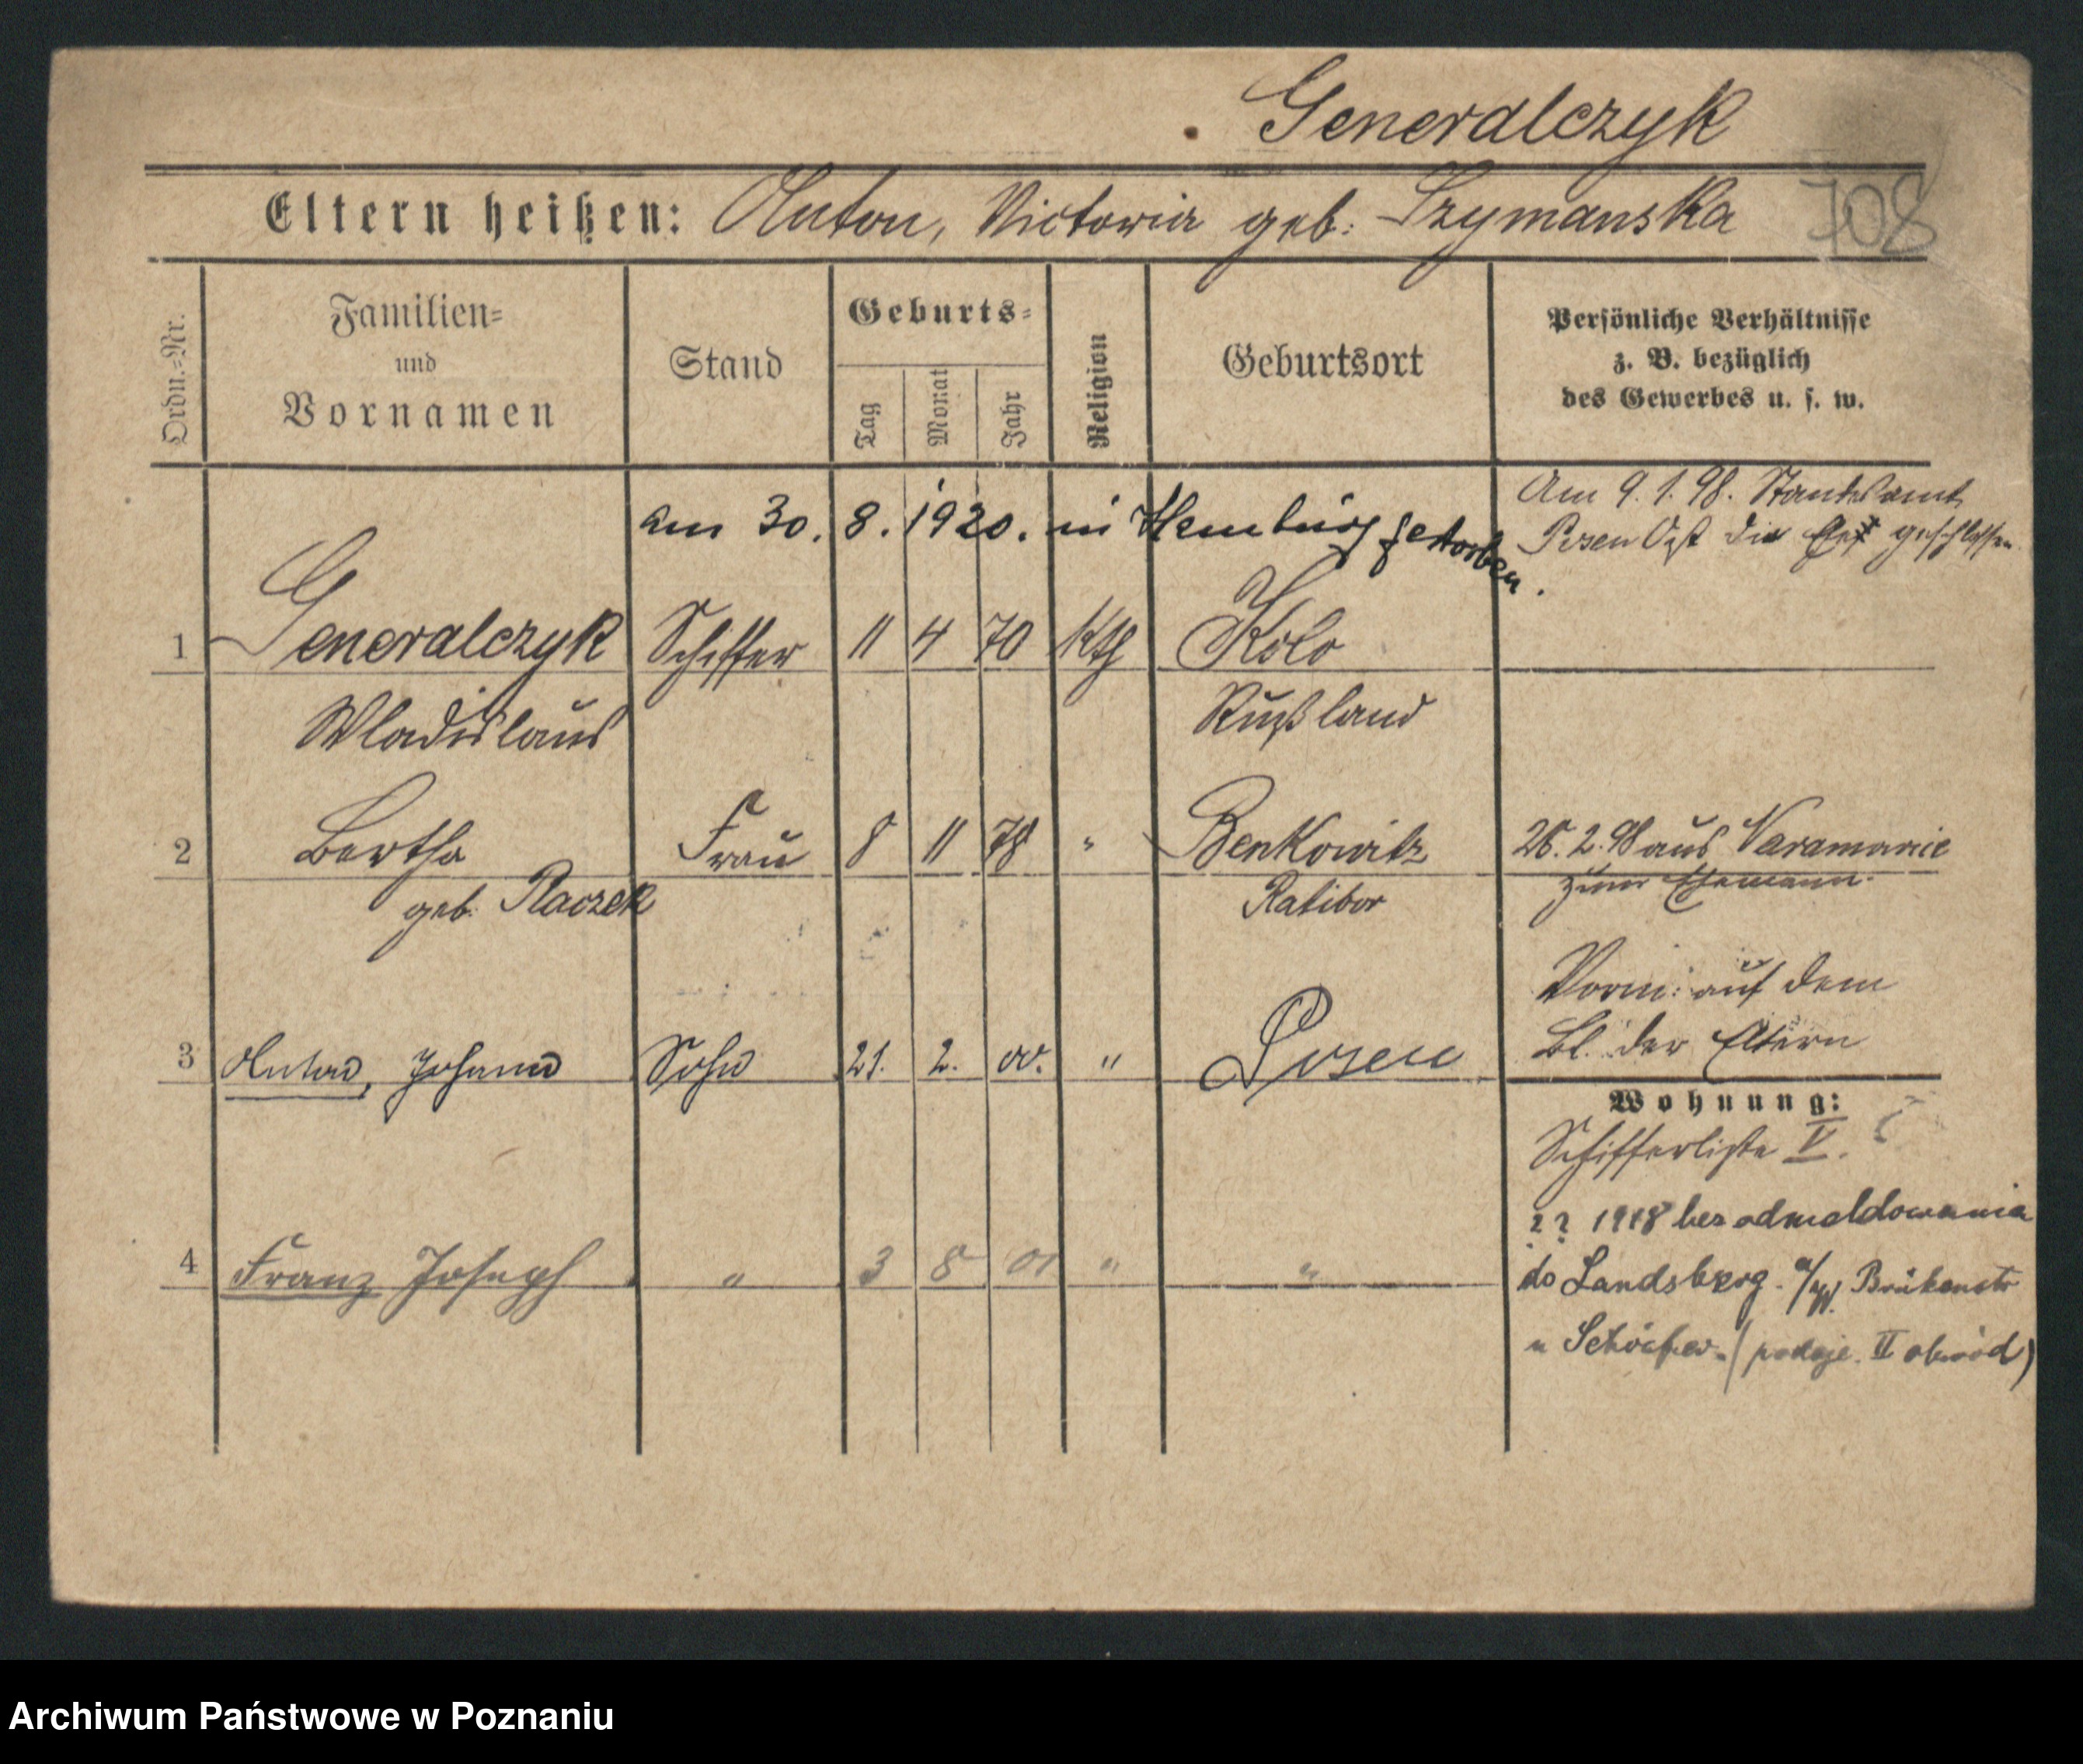 Generalczyk
Eltern heißen: Anton, Victoria geb. Szymanska
708
Ordn.-Nr.
Familien- und Vornamen
Stand
Geburts-
Tag
Monat
Jahr
Religion
Geburtsort
Persönliche Verhältnisse
z. B. bezüglich
des Gewerbes u. s. w.
am 30. 8. 1920. in Hamburg gestorben.
Am 9. 1. 98. Standesamt
Posen Ost die Ehe geschlossen
1 Generalczyk Schiffer 11 4 70 Kth Kolo
Wladislaus Rußland
2 Bertha Frau 8 11 78 " Benkowitz
geb. Raczek Ratibor
26. 2. 98 aus
zum Ehemann.
Vorm: auf dem
Bl. der Eltern
3 Anton, Johann Sohn 21. 2. 00. " Posen
Wohnung:
Schifferliste V.
4 Franz Joseph " 3 8 01 " "
?? 1918 bez odmeldowania
do Landsberg a/W.
u (podaje II obwód)
Archiwum Państwowe w Poznaniu